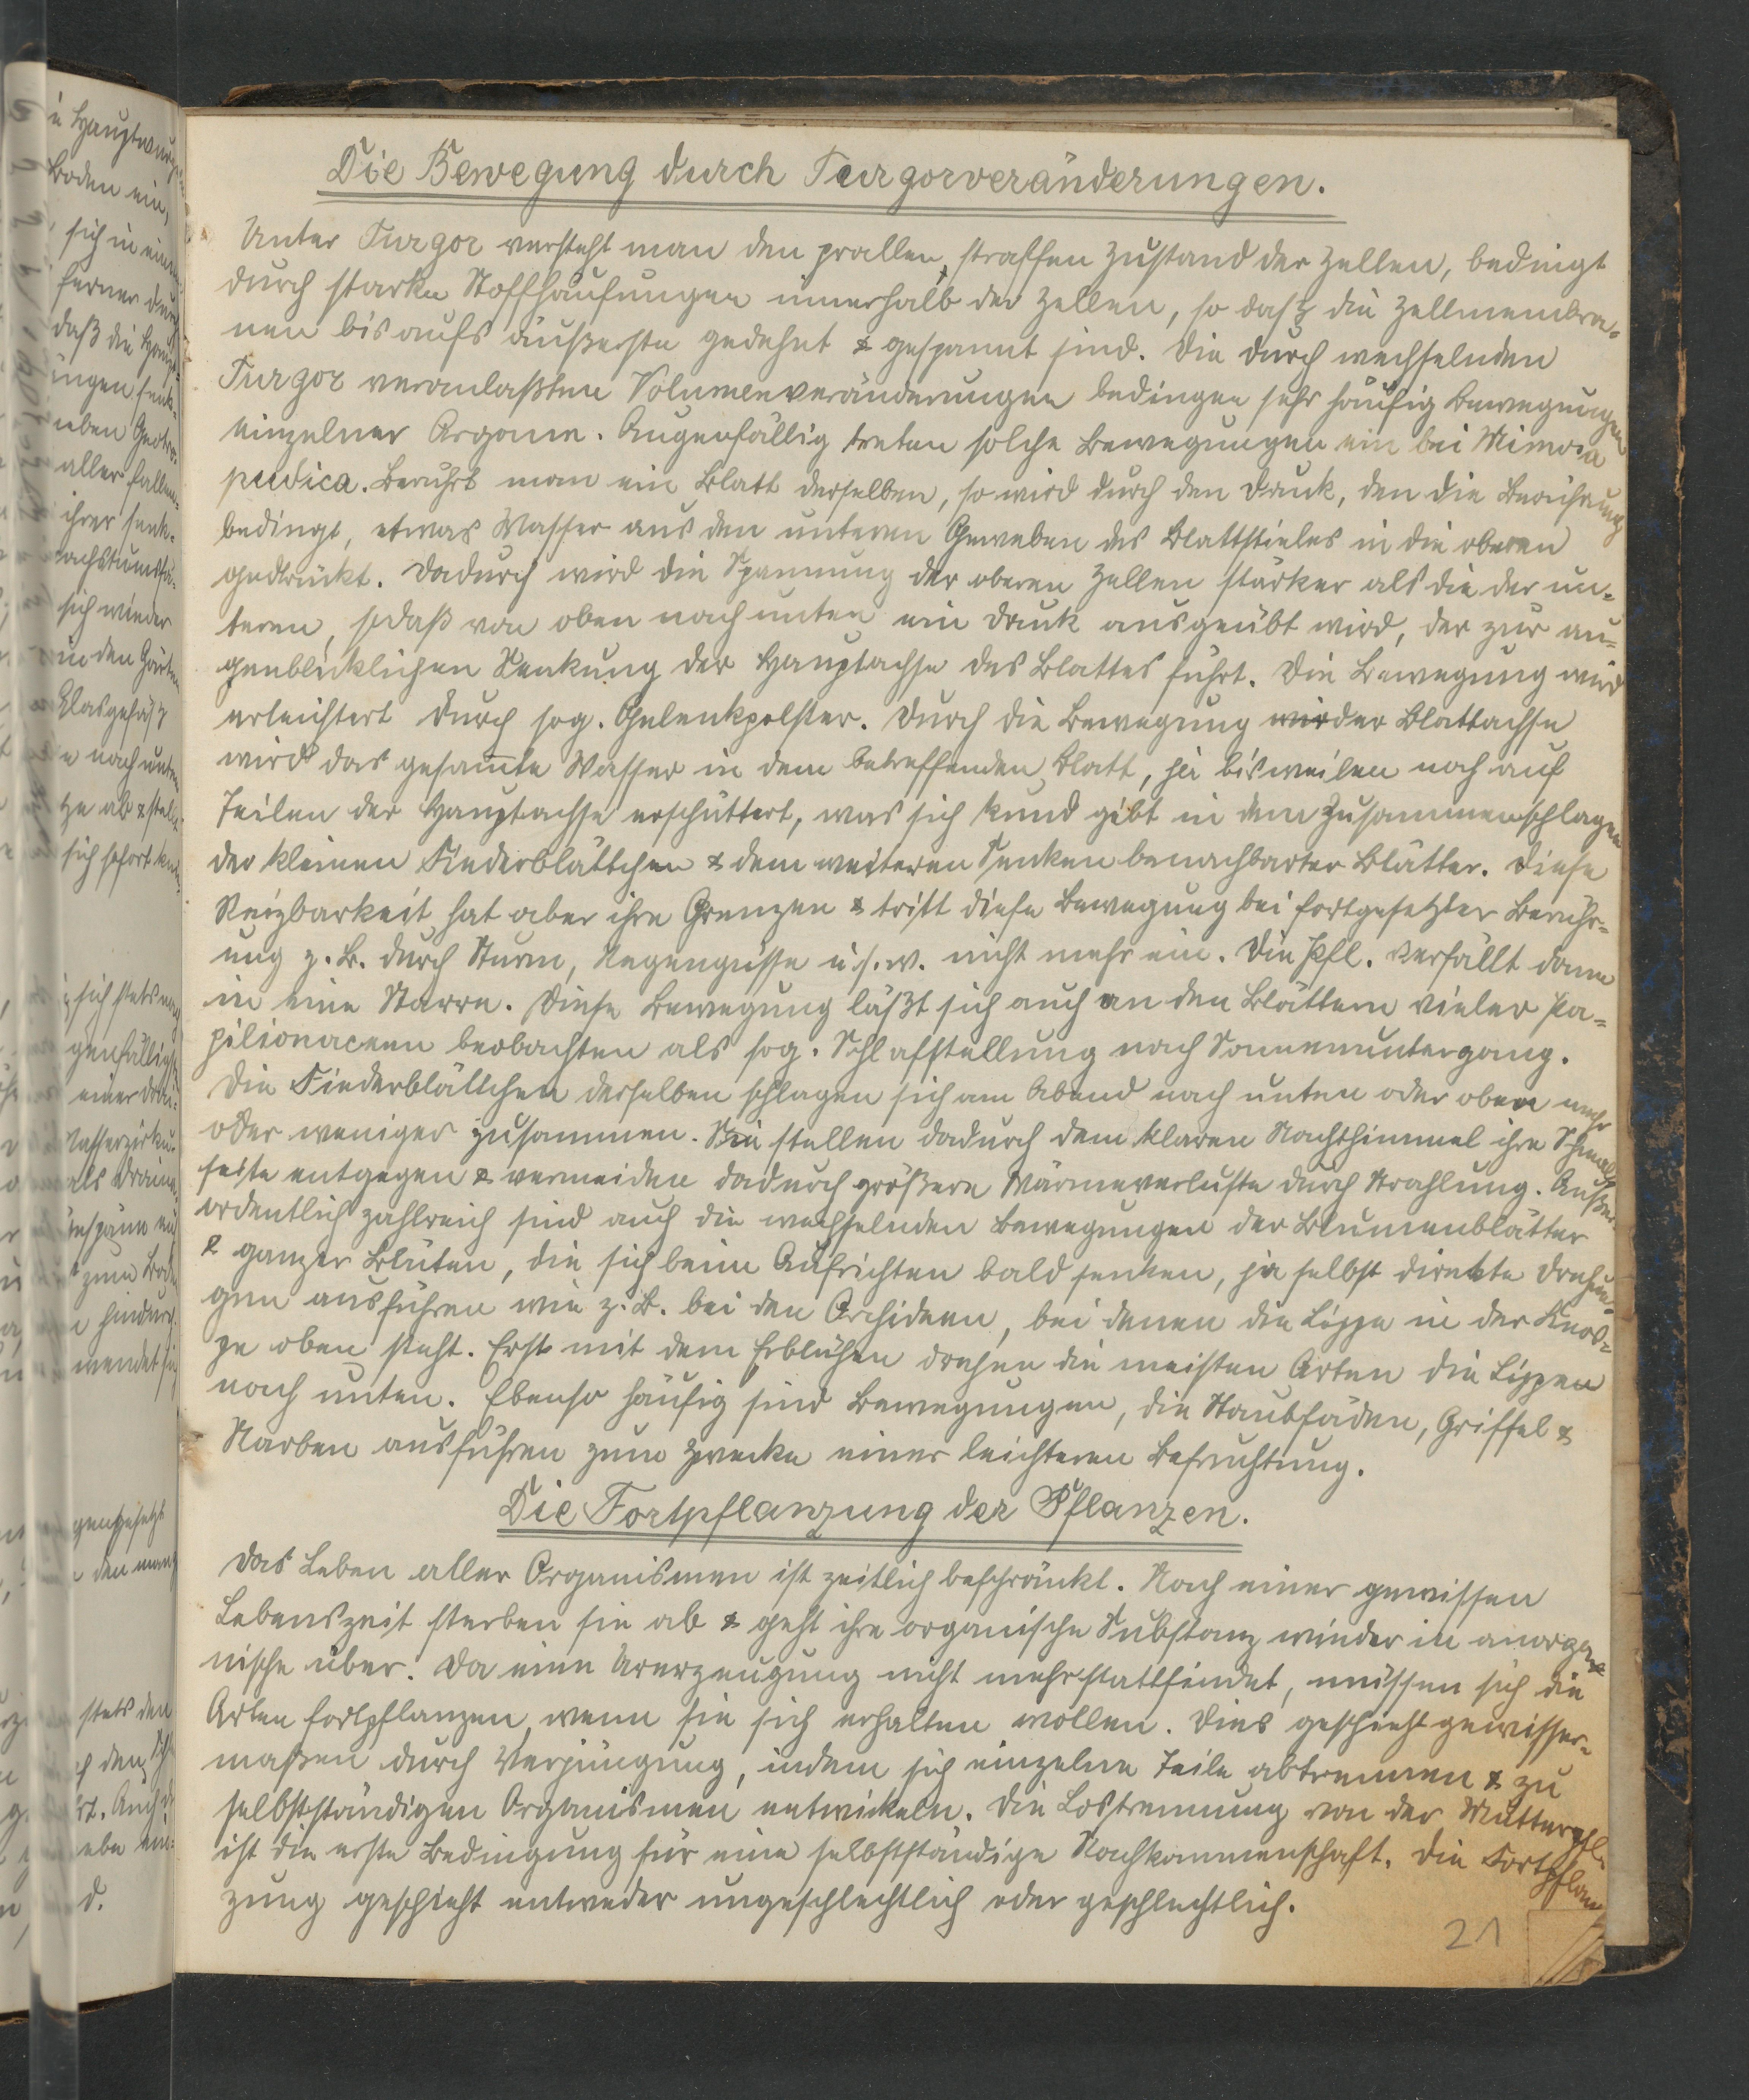 Die Bewegung durch Turgorveränderungen.
Unter Turgor versteht man den prallen, straffen Zustand der Zellen, bedingt
durch starke Stoffhäufungen innerhalb der Zellen, so daß die Zellmembra-
nen bis aufs äußerste gedehnt & gespannt sind. Die durch wechselnden
Turgor veranlaßten Volumenveränderungen bedingen sehr häufig Bewegungen
einzelner Organe. Augenfällig treten solche Bewegungen ein bei Mimosa
pudica. Berührt man ein Blatt derselben, so wird durch den Druck, den die Berührung
bedingt, etwas Wasser aus den unteren Geweben des Blattstieles in die oberen
gedrückt. Dadurch wird die Spannung der oberen Zellen stärker als die der un-
teren, sodaß von oben nach unten ein Druck ausgeübt wird, der zur au-
genblicklichen Senkung der Hauptachse des Blattes führt. Die Bewegung wird
erleichtert durch sog. Gelenkpolster. Durch die Bewegung wir der Blattachse
wird das gesamte Wasser in dem betreffenden Blatt, ja bisweilen noch auf
Teilen der Hauptachse erschüttert, was sich kund gibt in dem Zusammenschlagen
der kleinen Fiederblättchen & dem weiteren Senken benachbarter Blätter. Diese
Reizbarkeit hat aber ihre Grenzen & tritt diese Bewegung bei fortgesetzter Berühr-
ung z. B. durch Sturm, Regengüsse u. s. w. nicht mehr ein. Die Pfl. verfällt dann
in eine Starre. Diese Bewegung läßt sich auch an den Blättern vieler Pa-
pilionaceen beobachten als sog. Schlafstellung nach Sonnenuntergang.
Die Fiederblättchen derselben schlagen sich am Abend nach unten oder oben mehr
oder weniger zusammen. Sie stellen dadurch dem klaren Nachthimmel ihre Schmal-
seite entgegen & vermeiden dadurch größere Wärmeverluste durch Strahlung. Außer-
ordentlich zahlreich sind auch die wechselnden Bewegungen der Blumenblätter
& ganzer Blüten, die sich beim Aufrichten bald senken, ja selbst direkte Drehun-
gen ausführen wie z. B. bei den Orchideen, bei denen die Lippe in der Knos-
pe oben steht. Erst mit dem Erblühen drehen die meisten Arten die Lippen
nach unten. Ebenso häufig sind Bewegungen, die Staubfäden, Griffel &
Narben ausführen zum Zwecke einer leichteren Befruchtung.
Die Fortpflanzung der Pflanzen.
Das Leben aller Organismen ist zeitlich beschränkt. Nach einer gewissen
Lebenszeit sterben sie ab & geht ihre organische Substanz wieder in anorga-
nische über. Da eine Urerzeugung nicht mehr stattfindet, müssen sich die
Arten fortpflanzen, wenn sie sich erhalten wollen. Dies geschieht gewisser-
maßen durch Verjüngung, indem sich einzelne Teile abtrennen & zu
selbstständigen Organismen entwickeln. Die Lostrennung von der Mutterpfl.
ist die erste Bedingung für eine selbstständige Nachkommenschaft. Die Fortpflan-
zung geschieht entweder ungeschlechtlich oder geschlechtlich.
21